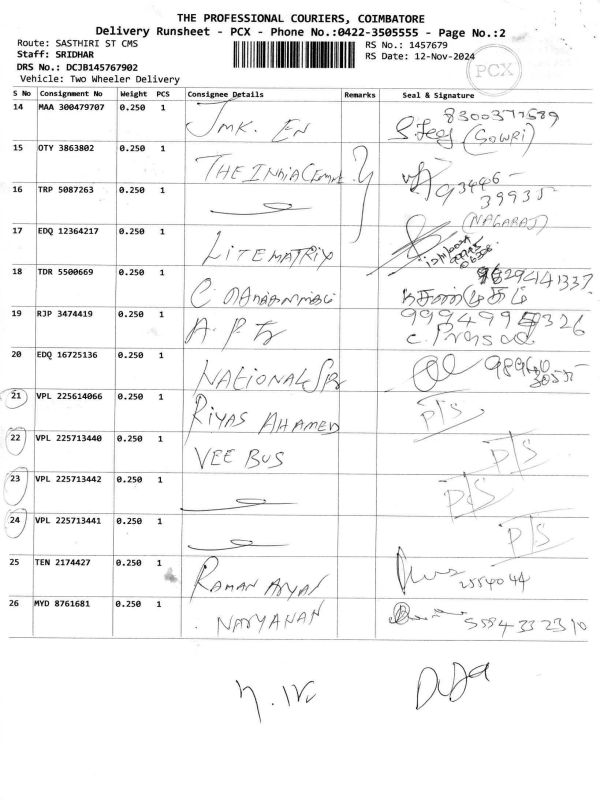 THE PROFESSIONAL COURIERS, COIMBATORE
Delivery Runsheet - PCX - Phone No.:0422-3505555 - Page No.:2
Route: SASTHIRI ST CMS
RS No.: 1457679
Staff: SRIDHAR
RS Date: 12-Nov-2024
DRS No.: DCJB145767902
Vehicle: Two Wheeler Delivery
PCX
S No Consignment No Weight PCS Consignee Details Remarks Seal & Signature
14 MAA 300479707 0.250 1 JMK. EN 8300377589 (GOWRI)
15 OTY 3863802 0.250 1 THE INDIA 93446-
16 TRP 5087263 0.250 1 39935
(NAGARAJ)
17 EDQ 12364217 0.250 1 LITEMATRIX
18 TDR 5500669 0.250 1 C 9629441337
19 RJP 3474419 0.250 1 A.P.
20 EDQ 16725136 0.250 1 NATIONAL
21 VPL 225614066 0.250 1 RIYAS AHAMED P/S
22 VPL 225713440 0.250 1 VEE BUS P/S
23 VPL 225713442 0.250 1 P/S
24 VPL 225713441 0.250 1 P/S
25 TEN 2174427 0.250 1 RAMAN 2554044
26 MYD 8761681 0.250 1 NARYANAN